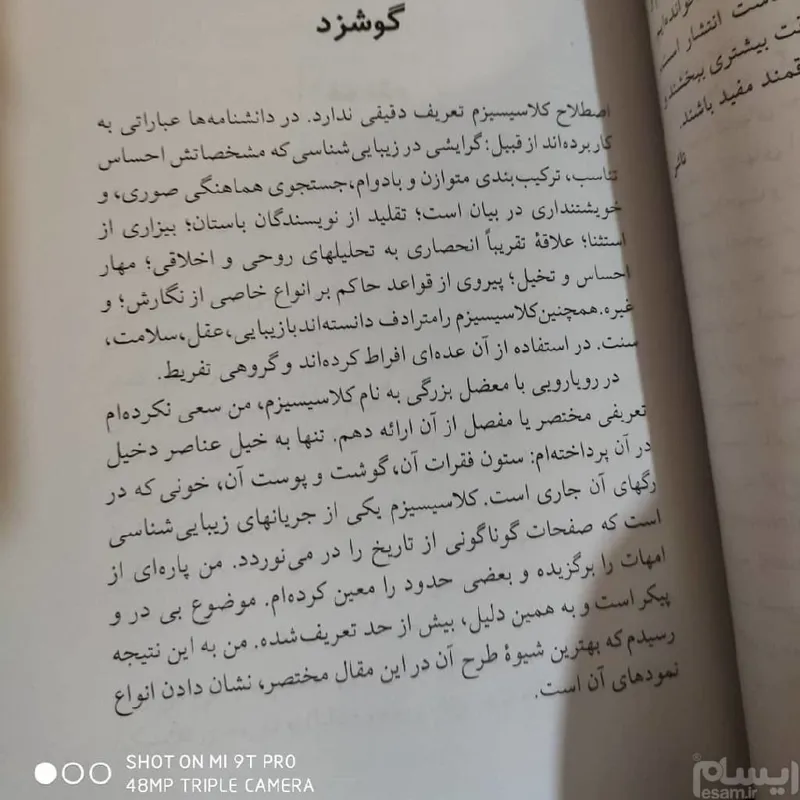 گوشزد
اصطلاح کلاسیسیزم تعریف دقیقی ندارد. در دانشنامه‌ها عباراتی به
کار برده‌اند از قبیل: گرایشی در زیبایی‌شناسی که مشخصاتش احساس
تناسب، ترکیب‌بندی متوازن و بادوام، جستجوی هماهنگی صوری، و
خویشتنداری در بیان است؛ تقلید از نویسندگان باستان؛ بیزاری از
استثنا؛ علاقهٔ تقریباً انحصاری به تحلیلهای روحی و اخلاقی؛ مهار
احساس و تخیل؛ پیروی از قواعد حاکم بر انواع خاصی از نگارش؛ و
غیره. همچنین کلاسیسیزم را مترادف دانسته‌اند با زیبایی، عقل، سلامت،
سنت. در استفاده از آن عده‌ای افراط کرده‌اند و گروهی تفریط.
در رویارویی با معضل بزرگی به نام کلاسیسیزم، من سعی نکرده‌ام
تعریفی مختصر یا مفصل از آن ارائه دهم. تنها به خیل عناصر دخیل
در آن پرداخته‌ام: ستون فقرات آن، گوشت و پوست آن، خونی که در
رگهای آن جاری است. کلاسیسیزم یکی از جریانهای زیبایی‌شناسی
است که صفحات گوناگونی از تاریخ را در می‌نوردد. من پاره‌ای از
امهات را برگزیده و بعضی حدود را معین کرده‌ام. موضوع بی در و
پیکر است و به همین دلیل، بیش از حد تعریف‌شده. من به این نتیجه
رسیدم که بهترین شیوهٔ طرح آن در این مقال مختصر، نشان دادن انواع
نمودهای آن است.
انتشار است
بیشتری ببخشند و
مفید باشند.
ناشر
SHOT ON MI 9T PRO
48MP TRIPLE CAMERA
ایسام
esam.ir